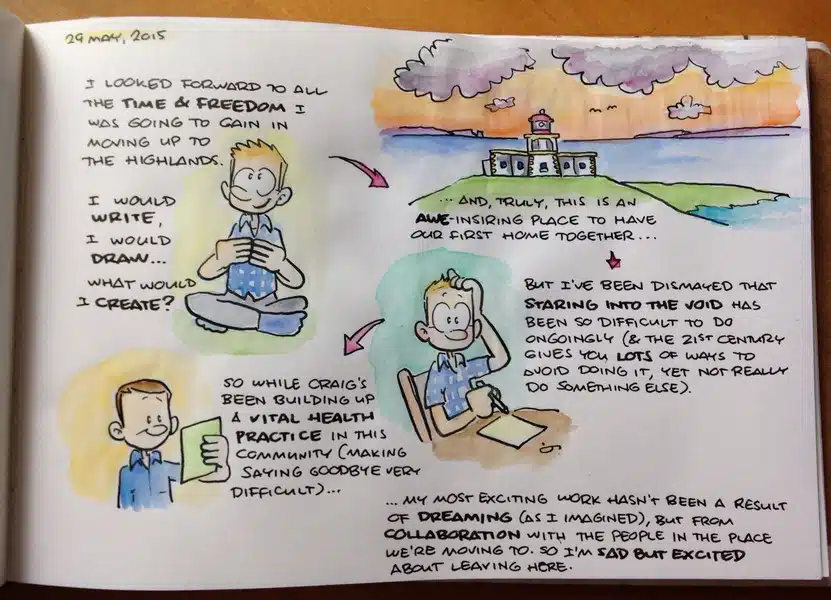 29 MAY, 2015
I LOOKED FORWARD TO ALL
THE TIME & FREEDOM I
WAS GOING TO GAIN IN
MOVING UP TO
THE HIGHLANDS.
I WOULD
WRITE,
I WOULD
DRAW...
WHAT WOULD
I CREATE?
... AND, TRULY, THIS IS AN
AWE-INSIRING PLACE TO HAVE
OUR FIRST HOME TOGETHER...
BUT I'VE BEEN DISMAYED THAT
STARING INTO THE VOID HAS
BEEN SO DIFFICULT TO DO
ONGOINGLY (& THE 21ST CENTURY
GIVES YOU LOTS OF WAYS TO
AVOID DOING IT, YET NOT REALLY
DO SOMETHING ELSE).
SO WHILE CRAIG'S
BEEN BUILDING UP
A VITAL HEALTH
PRACTICE IN THIS
COMMUNITY (MAKING
SAYING GOODBYE VERY
DIFFICULT)...
... MY MOST EXCITING WORK HASN'T BEEN A RESULT
OF DREAMING (AS I IMAGINED), BUT FROM
COLLABORATION WITH THE PEOPLE IN THE PLACE
WE'RE MOVING TO. SO I'M SAD BUT EXCITED
ABOUT LEAVING HERE.